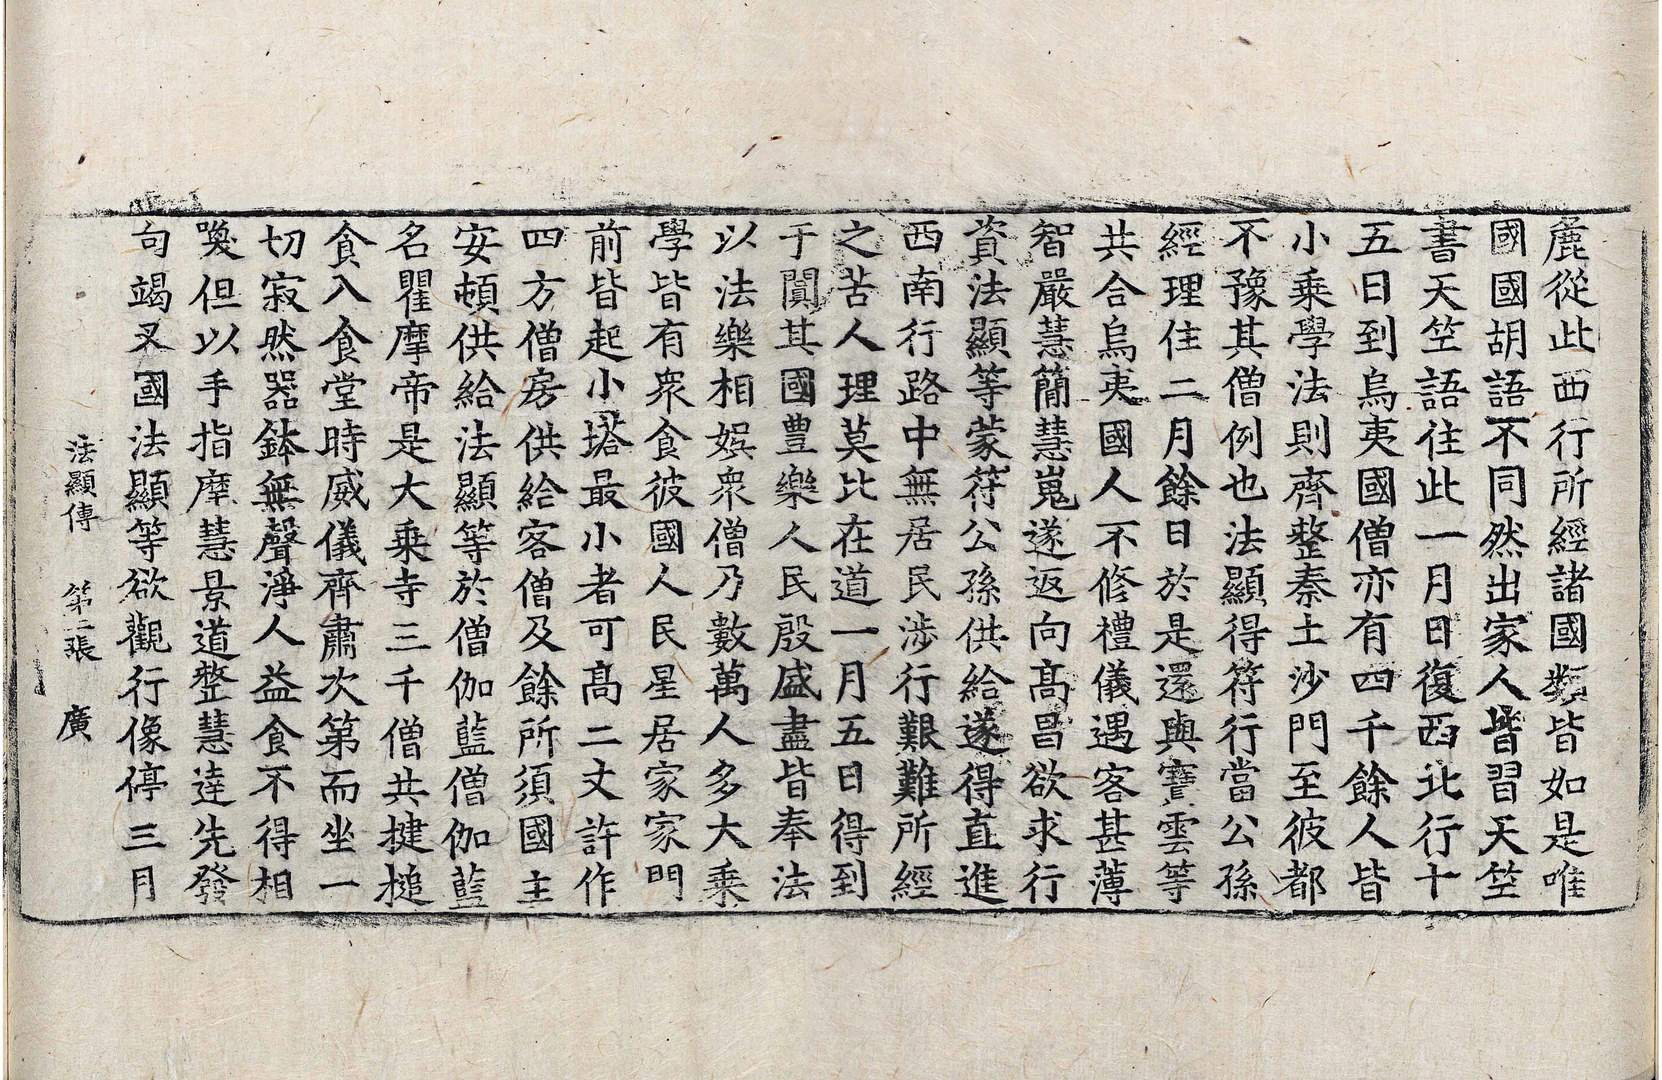 麁從此西行所經諸國類皆如是唯
國國胡語不同然出家人皆習天竺
書天竺語住此一月日復西北行十
五日到烏夷國僧亦有四千餘人皆
小乘學法則齊整秦土沙門至彼都
不豫其僧例也法顯得符行當公孫
經理住二月餘日於是還與寶雲等
共合烏夷國人不修禮儀遇客甚薄
智嚴慧簡慧嵬遂返向高昌欲求行
資法顯等蒙苻公孫供給遂得直進
西南行路中無居民涉行艱難所經
之苦人理莫比在道一月五日得到
于闐其國豊樂人民殷盛盡皆奉法
以法樂相娛衆僧乃數萬人多大乘
學皆有衆食彼國人民星居家家門
前皆起小塔最小者可高二丈許作
四方僧房供給客僧及餘所須國主
安頓供給法顯等於僧伽藍僧伽藍
名瞿摩帝是大乘寺三千僧共揵搥
食入食堂時威儀齊肅次第而坐一
切寂然器鉢無聲淨人益食不得相
喚但以手指摩慧景道整慧達先發
向竭叉國法顯等欲觀行像停三月
法顯傳 第二張 廣